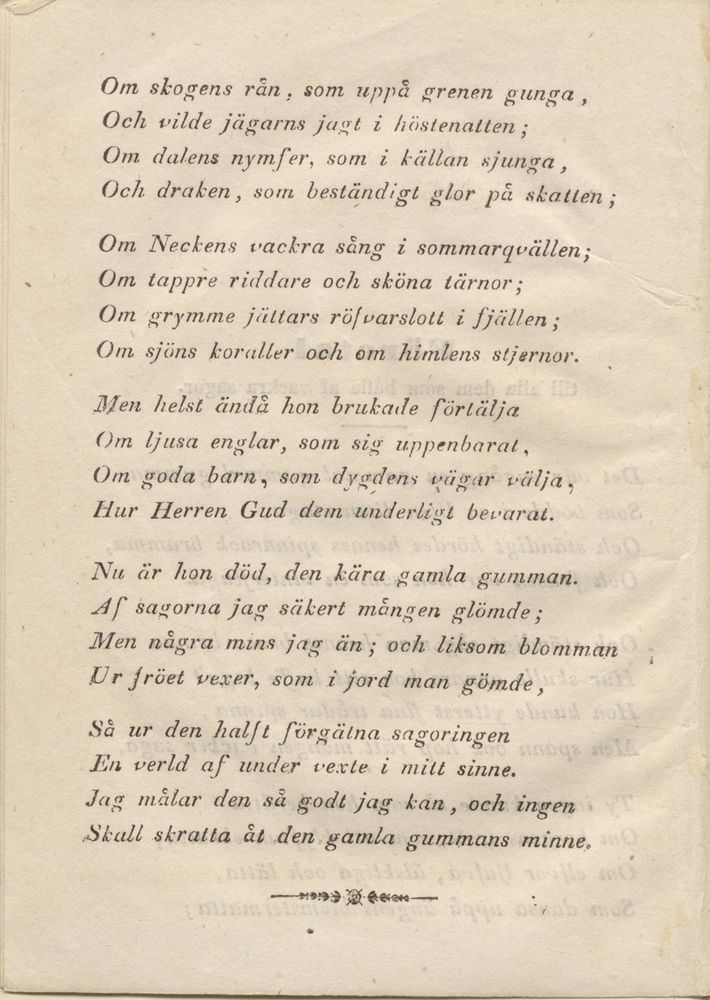 Om skogens rån, som uppå grenen gunga,
Och vilde jägarns jagt i höstenatten;
Om dalens nymfer, som i källan sjunga,
Och draken, som beständigt glor på skatten;
Om Neckens vackra sång i sommarqvällen;
Om tappre riddare och sköna tärnor;
Om grymme jättars röfvarslott i fjällen;
Om sjöns koraller och om himlens stjernor.
Men helst ändå hon brukade förtälja
Om ljusa englar, som sig uppenbarat,
Om goda barn, som dygdens vägar välja,
Hur Herren Gud dem underligt bevarat.
Nu är hon död, den kära gamla gumman.
Af sagorna jag säkert mången glömde;
Men några mins jag än; och liksom blomman
Ur fröet vexer, som i jord man gömde,
Så ur den halft förgätna sagoringen
En verld af under vexte i mitt sinne.
Jag målar den så godt jag kan, och ingen
Skall skratta åt den gamla gummans minne.